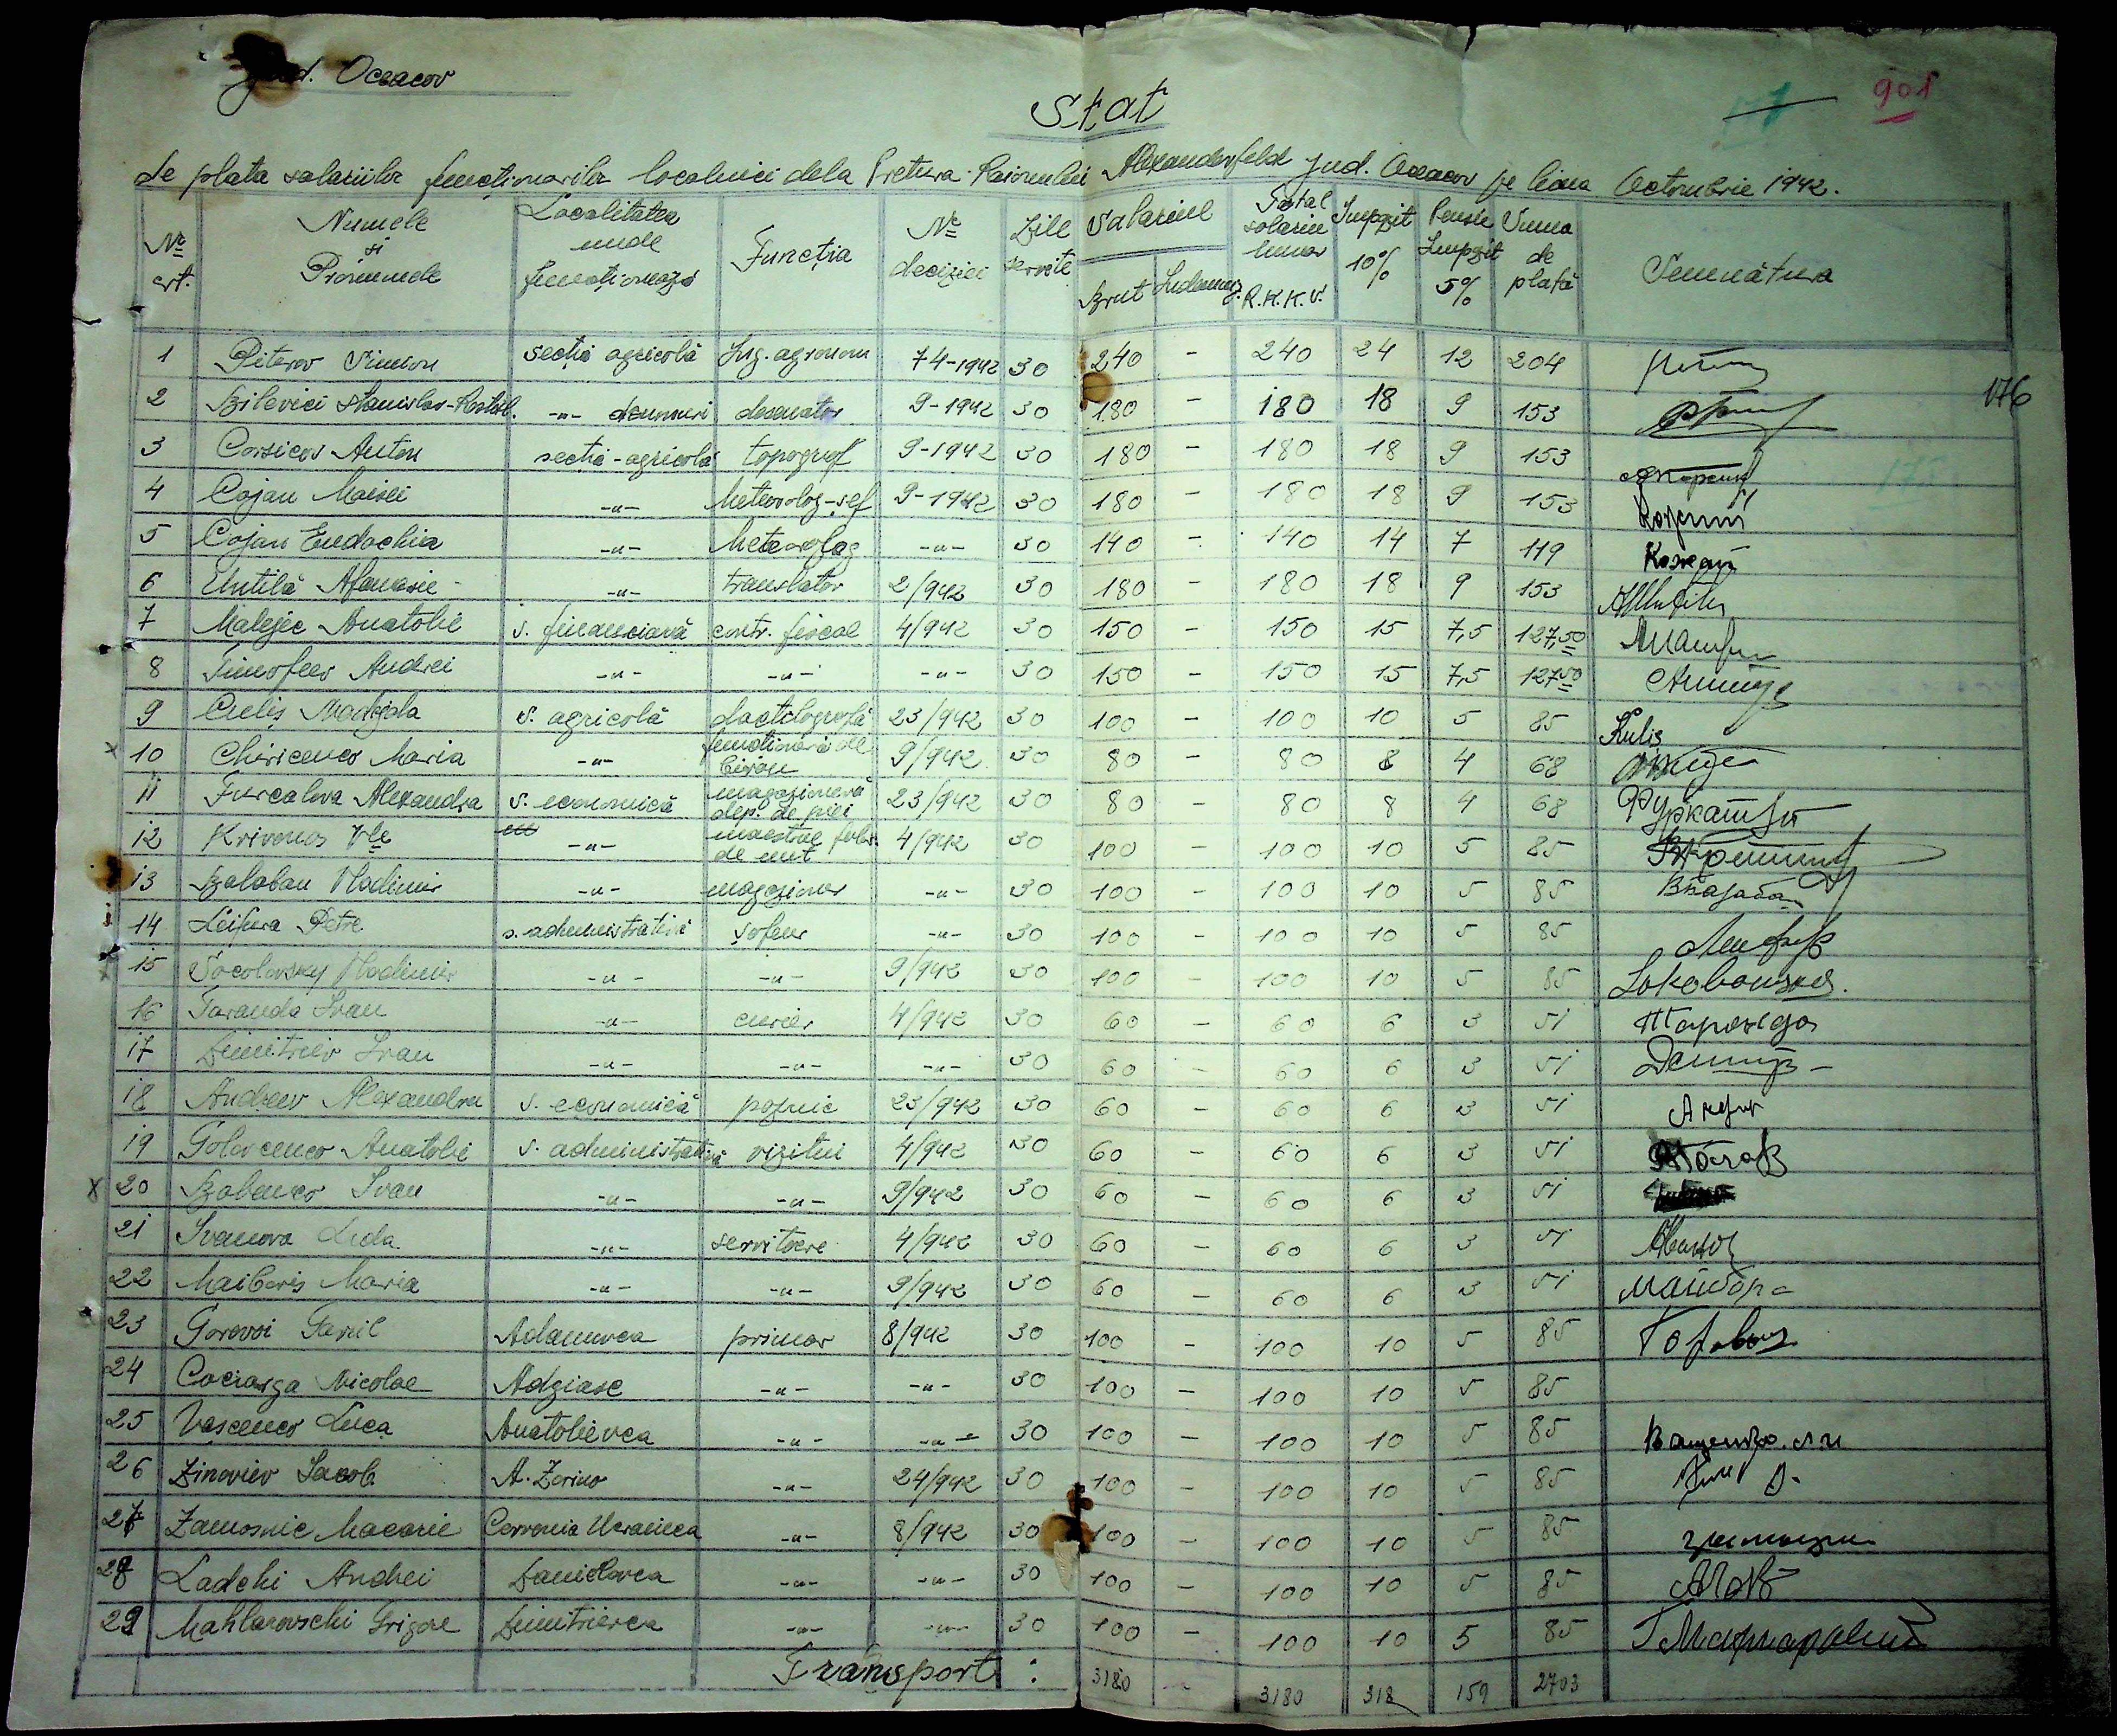 Jud. Oceacov
Stat
901
de plata salariilor funcționarilor localnici dela Pretura Raionului Alexanderfeld jud. Oceacov pe luna Octombrie 1942.
№ crt. | Numele și Pronumele | Localitatea unde funcționează | Funcția | № deciziei | Zile servite | Salariul Brut | Indemniz. | Total salariu lunar R.K.K.S. | Impozit 10% | Pensie Impozit 5% | Suma de plată | Semnătura
1 Piterov Simion secția agricolă Ing. agronom 74-1942 30 240 - 240 24 12 204
176
2 Bilevici Stanislav -"- drumuri desenator 9-1942 30 180 - 180 18 9 153
3 Corsicov Anton secția-agricolă topograf 9-1942 30 180 - 180 18 9 153
4 Cojan Moisei -"- Meteorolog-șef 9-1942 30 180 - 180 18 9 153
5 Cojan Eudochia -"- Meteorolog -"- 30 140 - 140 14 7 119 Кожан
6 Untilă Afanasie -"- translator 2/942 30 180 - 180 18 9 153
7 Malejec Anatolie s. financiară contr. fiscal 4/942 30 150 - 150 15 7,5 127,50
8 Timofeev Andrei -"- -"- -"- 30 150 - 150 15 7,5 127,50
9 Culiș Nadejda s. agricolă dactilografă 23/942 30 100 - 100 10 5 85 Kuliș
x 10 Chiricenco Maria -"- funcționară de birou 9/942 30 80 - 80 8 4 68
11 Furcalova Alexandra s. economică magazioneră dep. de piei 23/942 30 80 - 80 8 4 68
12 Krivonos Vle -"- maestru fabr. de unt 4/942 30 100 - 100 10 5 85
13 Balaban Vladimir -"- magazioner -"- 30 100 - 100 10 5 85
14 Leifura Petre s. administrativă șofeur -"- 30 100 - 100 10 5 85
x 15 Socolovsky Vladimir -"- -"- 9/942 30 100 - 100 10 5 85
16 Taranda Ivan -"- curier 4/942 30 60 - 60 6 3 51 Таранда
17 Dimitriev Ivan -"- -"- -"- 30 60 - 60 6 3 51
18 Andreev Alexandru s. economică pojnic 23/942 30 60 - 60 6 3 51
19 Golovcenco Anatolie s. administrativă vizitiu 4/942 30 60 - 60 6 3 51
x 20 Babenco Ivan -"- -"- 9/942 30 60 - 60 6 3 51
21 Ivanova Lida -"- servitoare 4/942 30 60 - 60 6 3 51
22 Maiboris Maria -"- -"- 9/942 30 60 - 60 6 3 51 Майбора
23 Gorovoi Gavril Adamovca primar 8/942 30 100 - 100 10 5 85
24 Cociarga Nicolae Adgiasc -"- -"- 30 100 - 100 10 5 85
25 Vascenco Luca Anatolievca -"- -"- 30 100 - 100 10 5 85
26 Zinoviev Iacob A. Zorino -"- 24/942 30 100 - 100 10 5 85
27 Zamosnic Macarie Cervonia Ucrainca -"- 8/942 30 100 - 100 10 5 85
28 Ladchi Andrei Danilovca -"- -"- 30 100 - 100 10 5 85
29 Mahlarovschi Grigore Dimitrievca -"- -"- 30 100 - 100 10 5 85
Transport: 3180 - 3180 318 159 2703